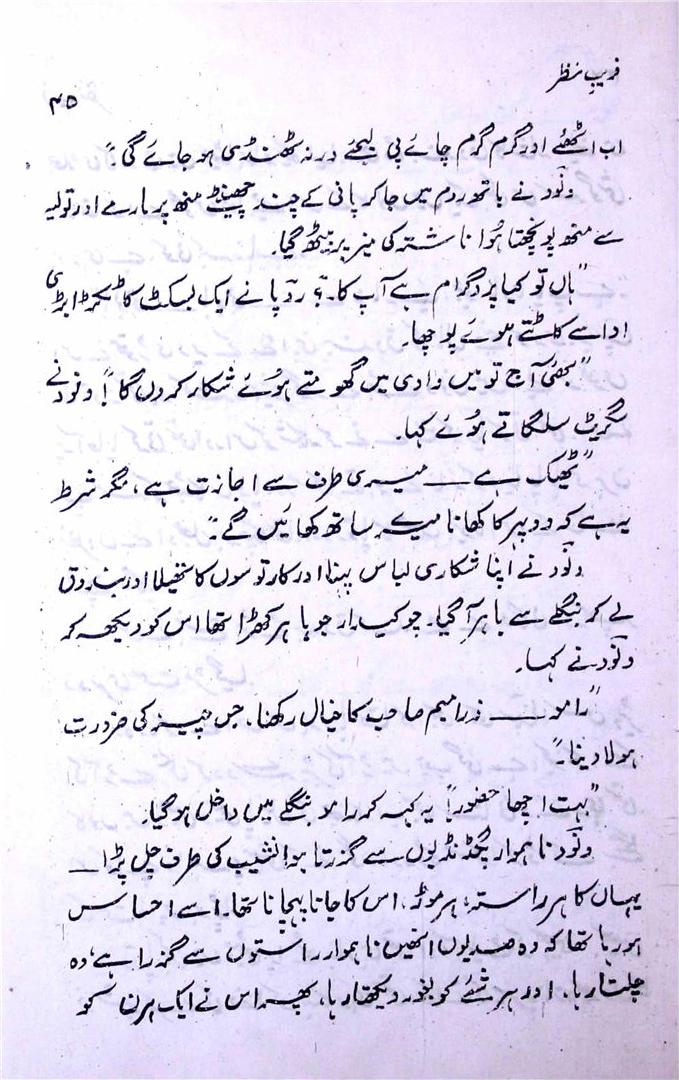 فریبِ نظر
۴۵
اب اٹھئے اور گرم گرم چائے پی لیجئے ورنہ ٹھنڈی ہو جائے گی"۔
ونود نے باتھ روم میں جا کر پانی کے چند چھینٹے منھ پر مارے اور تولیہ
سے منھ پونچھتا ہُوا ناشتہ کی میز پر بیٹھ گیا۔
"ہاں تو کیا پروگرام ہے آپ کا۔؟ روپا نے ایک بسکٹ کا ٹکڑا بڑی
ادا سے کاٹتے ہوئے پوچھا۔
"بھئی آج تو میں وادی میں گھومتے ہوئے شکار کروں گا"! ونود نے
سگریٹ سلگاتے ہوئے کہا۔
"ٹھیک ہے ــــ میری طرف سے اجازت ہے، مگر شرط
یہ ہے کہ دوپہر کا کھانا میرے ساتھ کھائیں گے"۔
ونود نے اپنا شکاری لباس پہنا اور کارتوسوں کا تھیلا اور بندوق
لے کر بنگلے سے باہر آ گیا۔ چوکیدار جو باہر کھڑا تھا اس کو دیکھ کر
ونود نے کہا۔
"رامو ــــ ذرا میم صاحب کا خیال رکھنا، جس چیز کی ضرورت
ہو لا دینا"۔
"بہت اچھا حضور"! یہ کہہ کر رامو بنگلے میں داخل ہو گیا۔
ونود ناہموار پگڈنڈیوں سے گزرتا ہوا نشیب کی طرف چل پڑا ــ
یہاں کا ہر راستہ، ہر موڑ، اس کا جانا پہچانا تھا۔ اسے احساس
ہو رہا تھا کہ وہ صدیوں انھیں ناہموار راستوں سے گزرا ہے، وہ
چلتا رہا۔ اور ہر شئے کو بغور دیکھتا رہا، پھر اس نے ایک ہرن کو